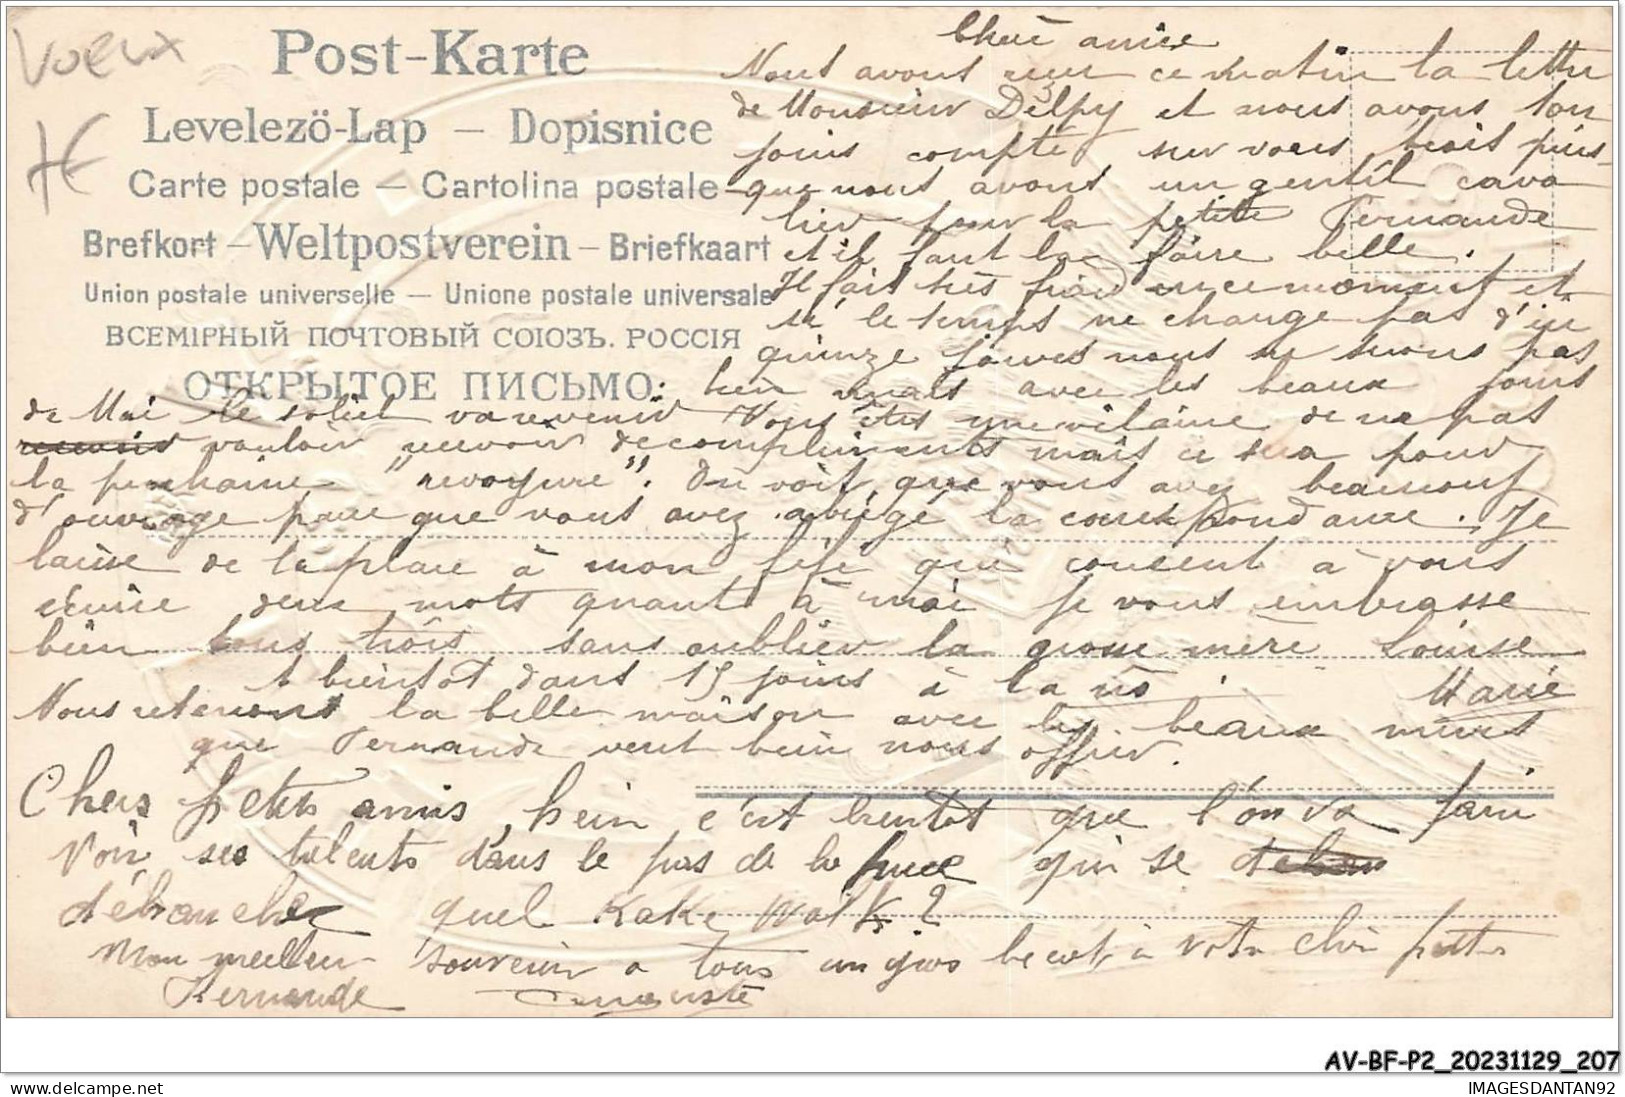 Voeux
1€
Post-Karte
Levelezö-Lap — Dopisnice
Carte postale — Cartolina postale
Brefkort – Weltpostverein – Briefkaart
Union postale universelle — Unione postale universale
ВСЕМІРНЫЙ ПОЧТОВЫЙ СОЮЗЪ. РОССІЯ
ОТКРЫТОЕ ПИСЬМО.
Chère amie
Nous avons reçu ce matin la lettre
de Monsieur Delpy et nous avons tou
jours compté sur vous trois puis-
que nous avons un gentil cava
lier pour la petite Fernande
et il faut la faire belle.
Il fait très froid en ce moment et
si le temps ne change pas d'ici
quinze jours nous ne serons pas
bien mais avec les beaux jours
de Mai le soleil va revenir Vous êtes une vilaine de ne pas
vouloir recevoir de compliments mais ce sera pour
la prochaine "revoyure". On voit que vous avez beaucoup
d'ouvrage parce que vous avez abrégé la correspondance. Je
laisse de la place à mon fifi qui consent à vous
écrire deux mots quant à moi je vous embrasse
bien tous trois sans oublier la grosse mère Louise
A bientôt dans 15 jours à la
Marie
Nous retenons la belle maison avec les beaux murs
que Fernande veut bien nous offrir.
Chers petits amis, hein c'est bientôt que l'on va faire
voir ses talents dans le pas de la puce qui se
débauche quel Kake Walk ?
Mon meilleur souvenir a tous un gros becot à votre chère petite
Fernande
Auguste
AV-BF-P2_20231129_207
IMAGESDANTAN92